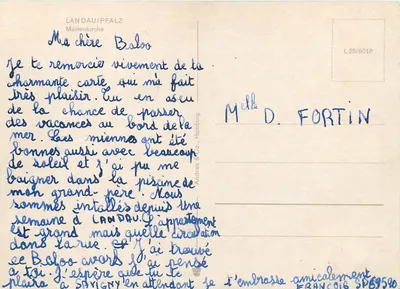 LANDAU/PFALZ
Marienkirche
L 25/6012
Ma chère Baloo
Je te remercie vivement de ta
charmante carte qui m'a fait
très plaisir. Tu en as eu
de la chance de passer
des vacances au bord de la
mer. Les miennes ont été
bonnes aussi avec beaucoup
de soleil et j'ai pu me
baigner dans la piscine de
mon grand-père. Nous
sommes intallés depuis une
semaine à LANDAU. L'appartement
est grand mais quelle circulation
dans la rue. J'ai trouvé
ce Baloo alors j'ai pensé
à toi. J'espère que tu te
plaira à SAVIGNY en attendant je t'embrasse amicalement
FRANÇOIS SP69590
Melle D. FORTIN